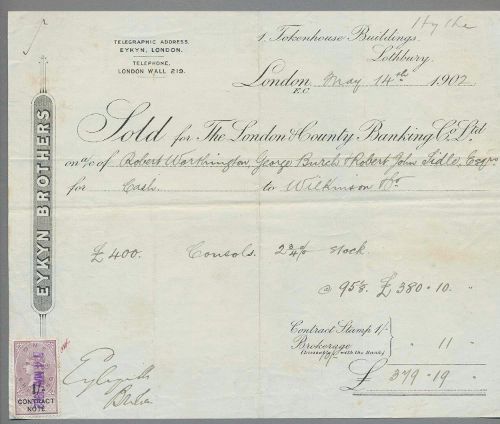 Hythe
TELEGRAPHIC ADDRESS,
EYKYN, LONDON.
TELEPHONE,
LONDON WALL 219.
1, Tokenhouse Buildings,
Lothbury,
London, May 14th 1902
E.C.
EYKYN BROTHERS
Sold for The London & County Banking Co. Ltd
on a/c of Robert Worthington, George Burch & Robert John Sidle, Esqrs
for Cash. to Wilkinson & Co.
£400. Consols. 2 3/4 % Stock.
@ 95 1/8. £ 380 . 10 . "
Contract Stamp 1/-
Brokerage 10/- " 11 "
(Divisible with the Bank)
£ 379 . 19 "
1/-
CONTRACT
NOTE
Eykyn